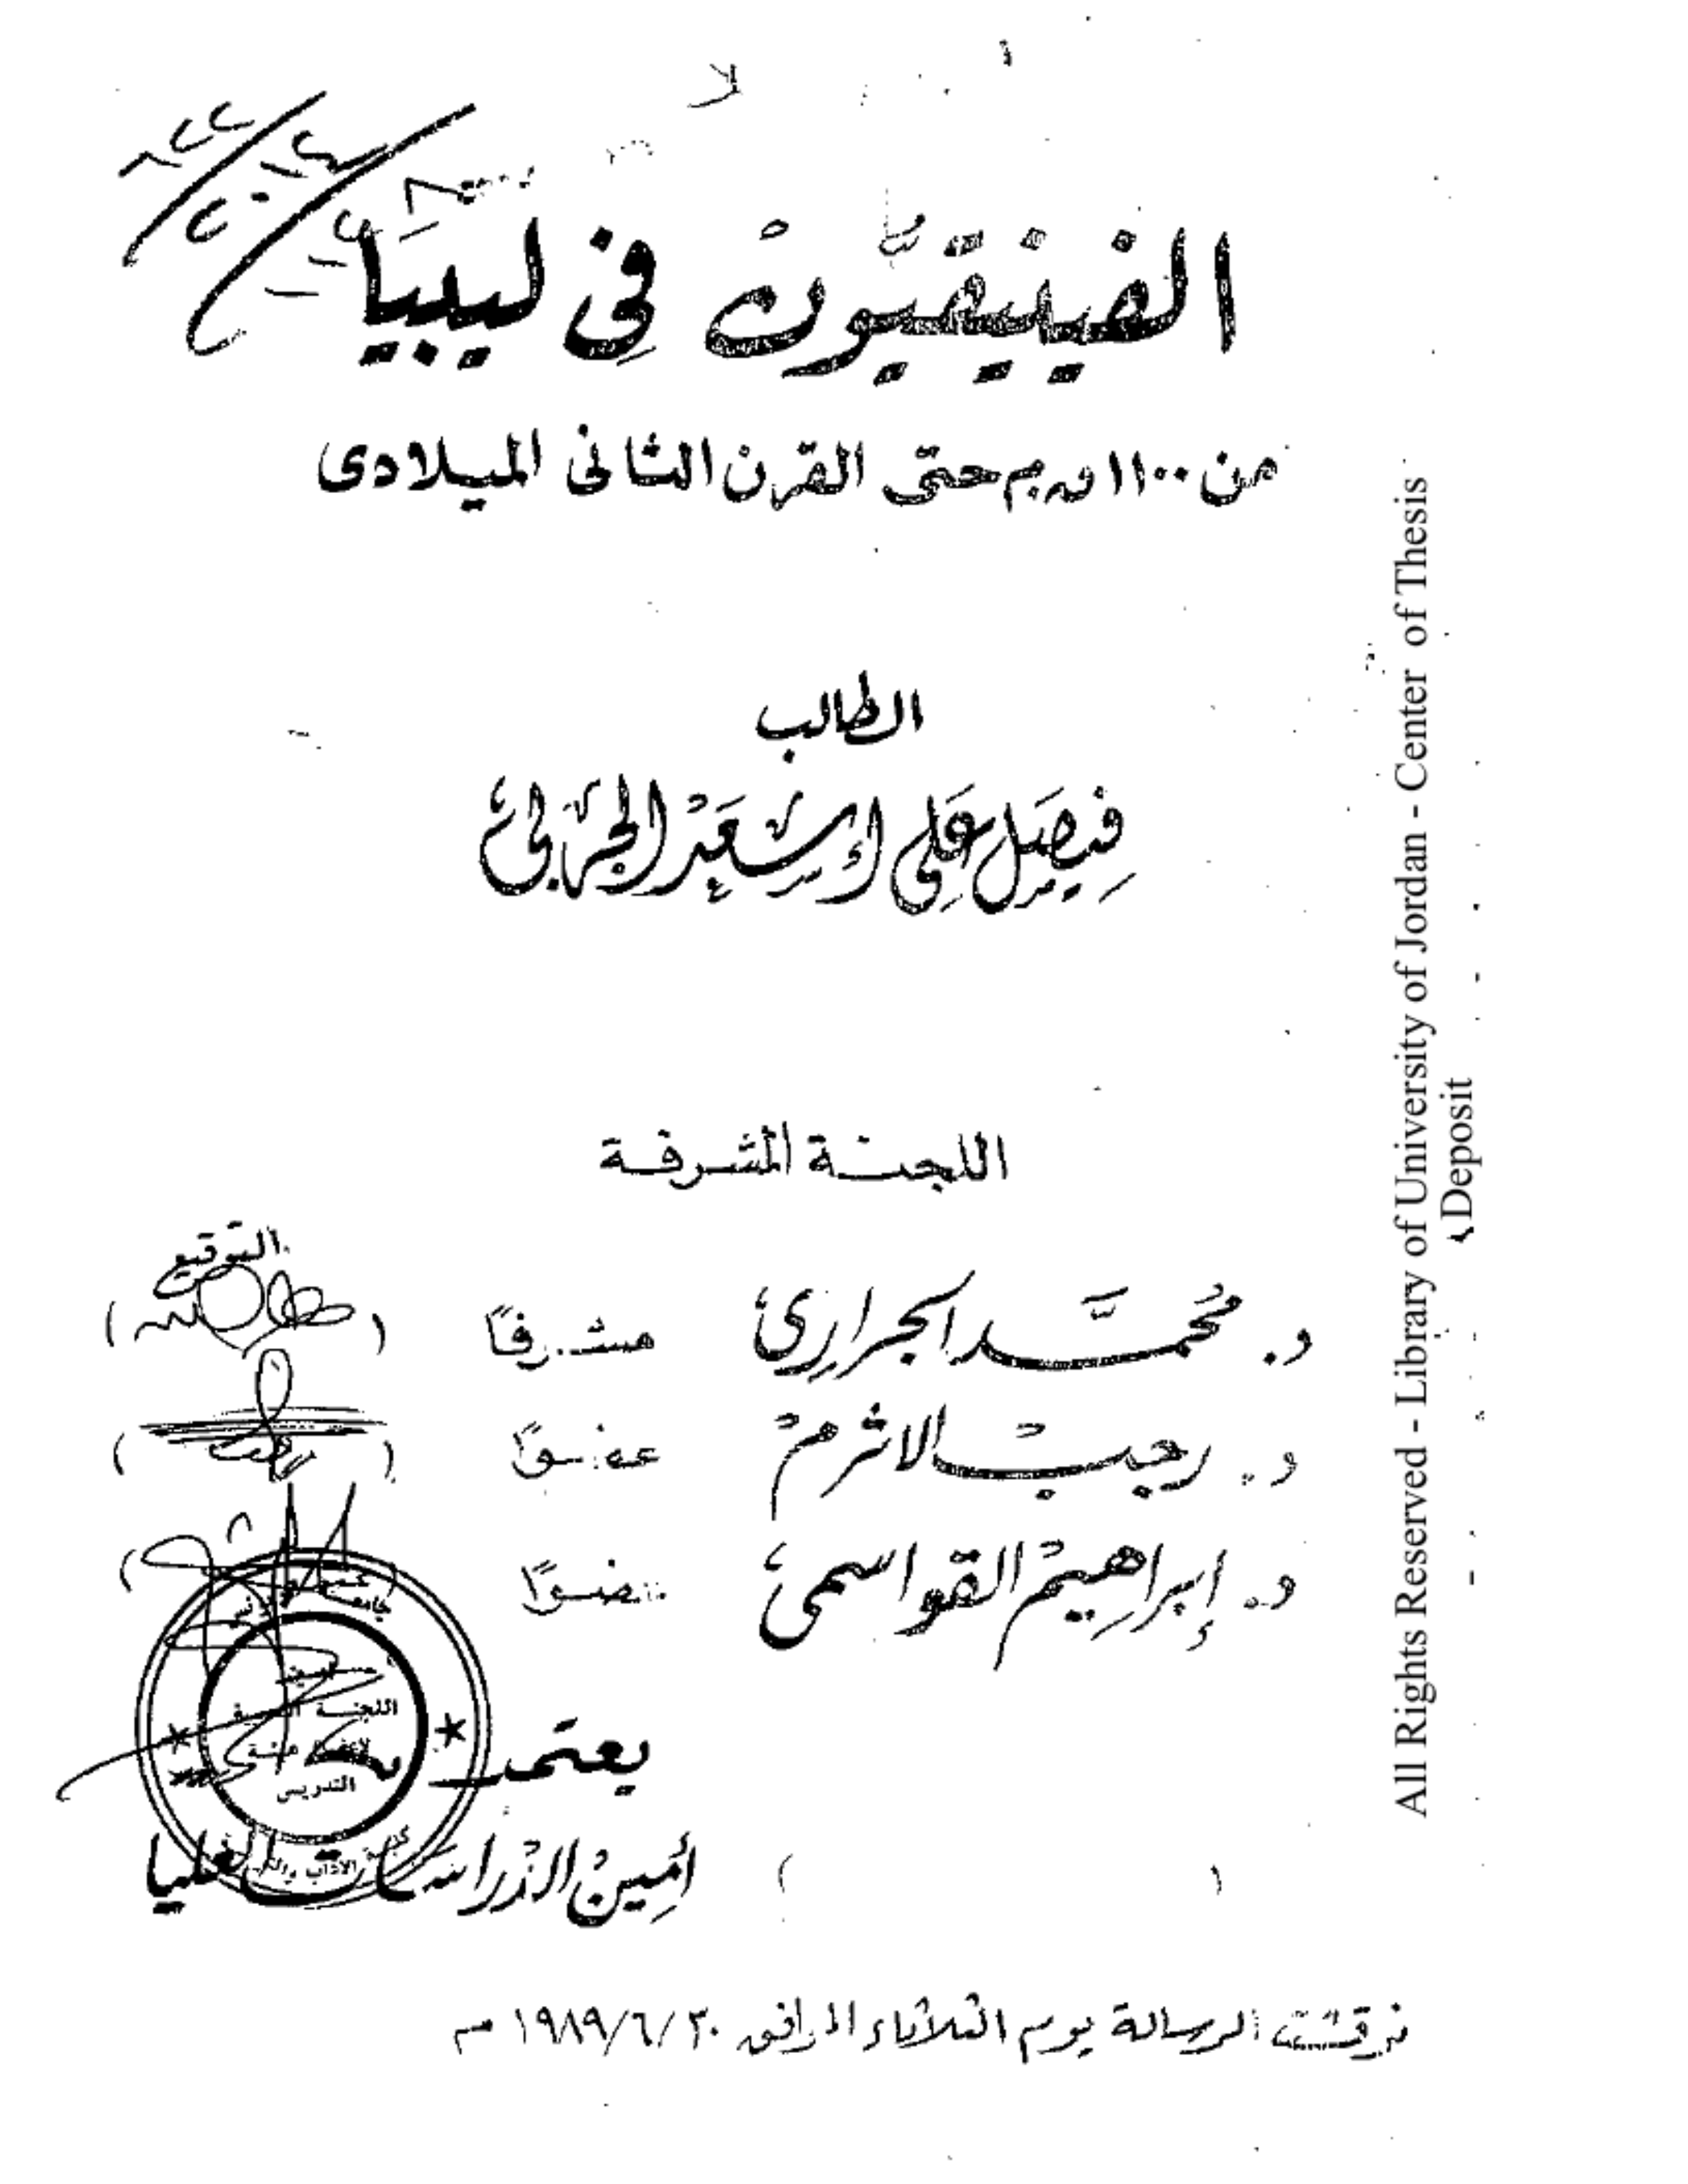 الفينيقيّون في ليبيا
من ١١٠٠ ق.م حتى القرن الثانى الميلادى
الطالب
فيصل علي أسعد الجربي
اللجنة المشرفة
التوقيع
د. محمّد الجراري مشرفاً ( )
د. رجب الاثرم عضواً ( )
د. إبراهيم القواسمي عضواً ( )
يعتمد
أمين الدراسات العليا ( )
اللجنة
التدريس
نوقشت الرسالة يوم الثلاثاء الموافق ٢٠/٦/١٩٨٩ م
All Rights Reserved - Library of University of Jordan - Center of Thesis
Deposit